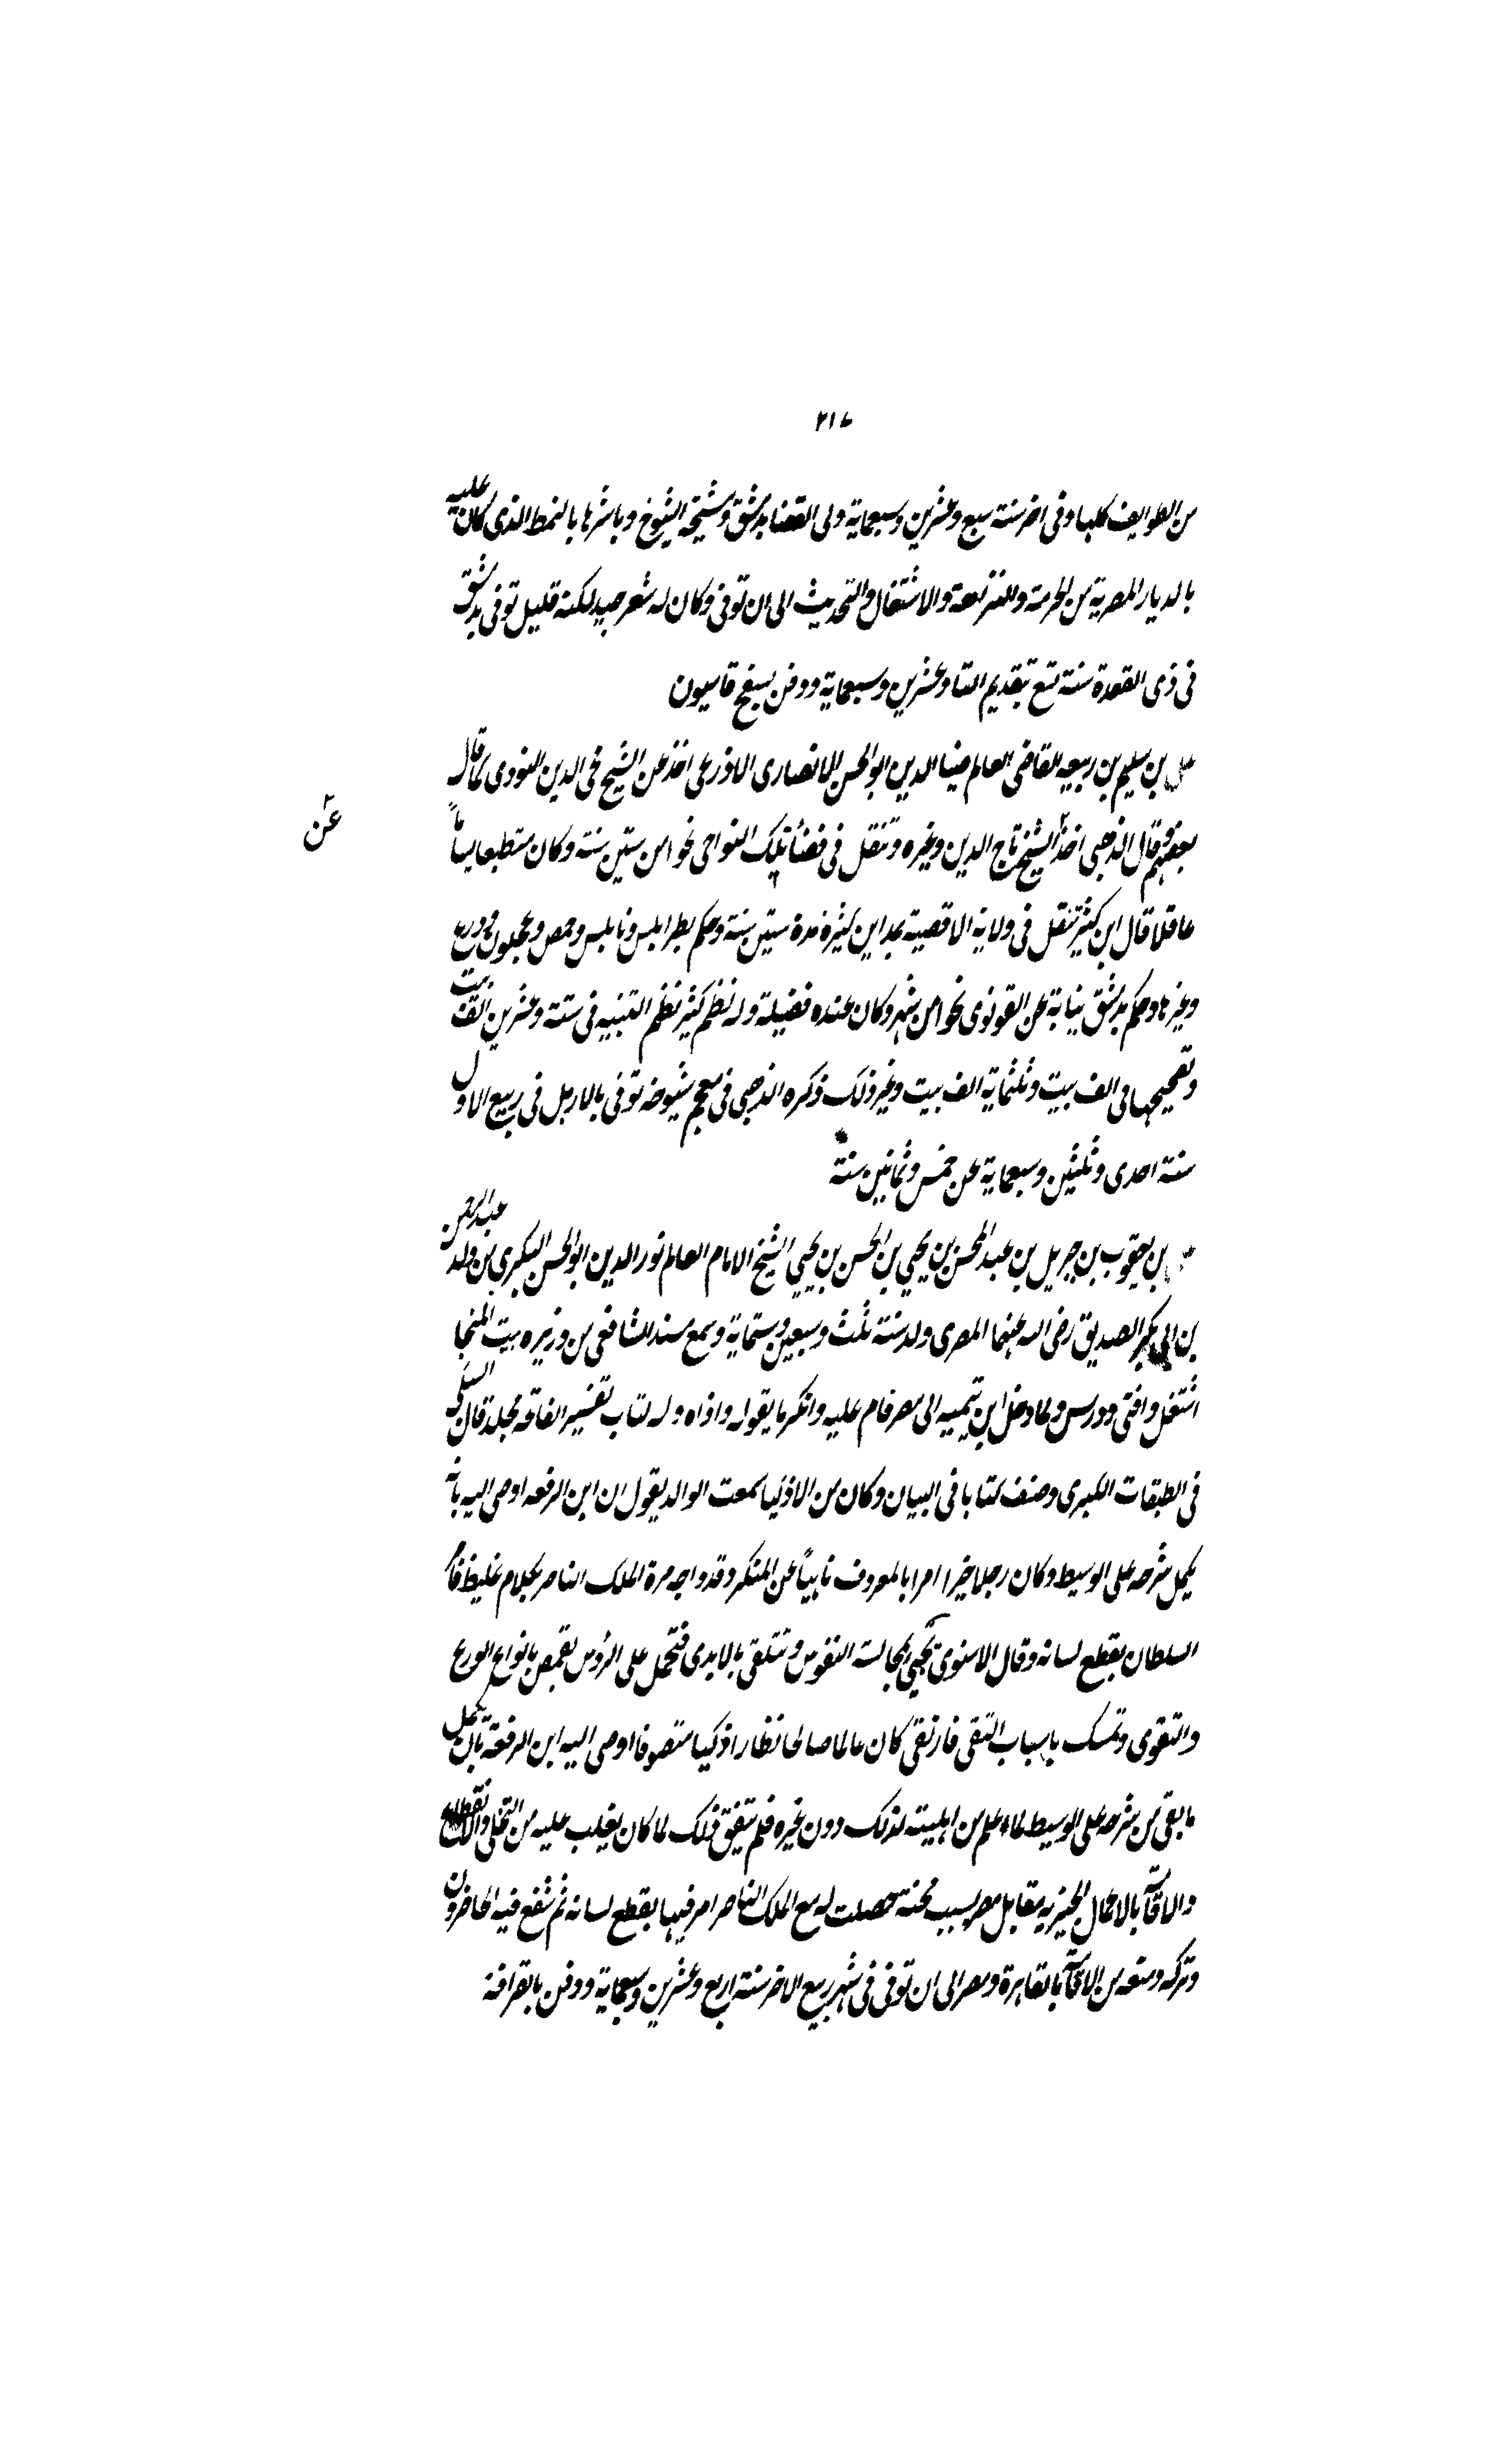 ٢١٤
من الطوايف كلها وفى اخر سنة سبع وعشرين وسبعماية ولى القضا بدمشق ومشيخة الشيوخ وباشرها بالنمط الذى كان عليه
بالديار المصرية من الحرمة والنزاهة والاشتغال والتحديث الى ان توفى وكان له شعر جيد لكنه قليل توفى بدمشق
فى ذى القعدة سنة تسع بتقديم التا وعشرين وسبعماية ودفن بسفح قاسيون
على بن سليم بن ربيعه القاضى العالم ضيا الدين ابو الحسن الانصارى الاذرعى اخذ عن الشيخ محى الدين النووى كما قال
بعضهم وقال الذهبى اخذ الشيخ تاج الدين وغيره وتنقل فى قضا تلك النواحى نحوا من ستين سنة وكان متطبعا سياسا
عن
عاقلا قال ابن كثير تنقل فى ولاية الاقضية بمداين كثيرة مدة ستين سنة وحكم بطرابلس ونابلس وحمص وعجلون وزرع
وغيرها وحكم بدمشق نيابة عن القونوى نحوا من شهر وكان عنده فضيلة وله نظم كثير نظم التنبيه فى ستة وعشرين الف بيت
وتصحيحها فى الف بيت وثلثماية الف بيت وغير ذلك ذكره الذهبى فى معجم شيوخه توفى بالرمل فى ربيع الاول
سنة احدى وثلثين وسبعماية عن خمس وثمانين سنة
على بن يعقوب بن جبريل بن عبد المحسن بن يحيى بن الحسن بن يحيى الشيخ الامام العالم نور الدين ابو الحسن البكرى من ولد عبد الرحمن
بن ابى بكر الصديق رضى الله عنهما المصرى ولد سنة ثلث وسبعين وستماية وسمع مسند الشافعى من وزيره بيت المنجا
اشتغل وافتى ودرس ولما دخل ابن تيميه الى مصر قام عليه وانكر ما يقوله واذاه وله كتاب تفسير الفاتحه مجلد قال السبكى
فى الطبقات الكبرى وصنف كتابا فى البيان وكان من الاذكيا سمعت الوالد يقول ان ابن الرفعه اوصى اليه بانه
يكمل شرحه على الوسيط وكان رجلا خيرا امرا بالمعروف ناهياً عن المنكر وقد واجه مرة الملك الناصر بكلام غليظ فامر
السلطان بقطع لسانه وقال الاسنوى تحيى بمجالسته النفوس وتتلقى بالايدى فتحمل على الرؤس تقمص بانواع الورع
والتقوى وتمسك باسباب التقى فارتقى كان عالما صالحا نظارا ذكيا متصوفا اوصى اليه ابن الرفعة بان يكمل
ما بقى من شرحه على الوسيط لما علم من اهليته لذلك دون غيره فلم يتفق ذلك لما كان يغلب عليه من التخلى والانقطاع
والاقامة بالاعمال الجيزيه مقابل مصر بسبب محنة حصلت له مع الملك الناصر امر فيها بقطع لسانه ثم شفع فيه الحاضرون
وتركه ومنعه من الاقامة بالقاهرة ومصر الى ان توفى فى شهر ربيع الاخر سنة اربع وعشرين وسبعماية ودفن بالقرافة